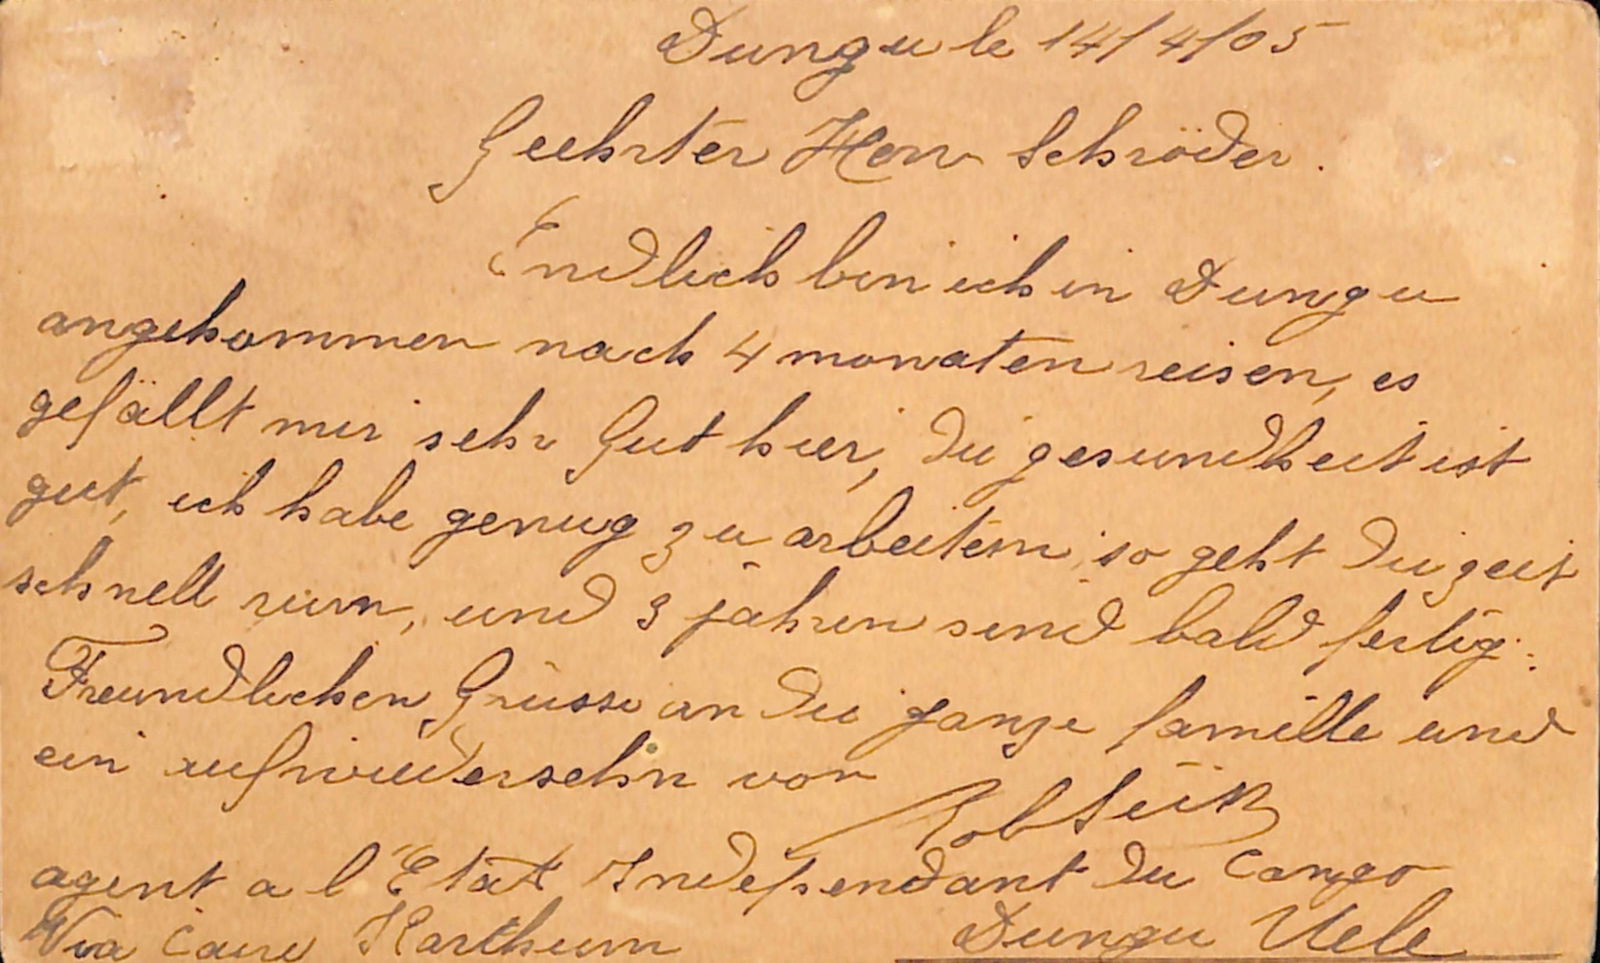 Dungu le 14/4/05
Geehrter Herr Schröder.
Endlich bin ich in Dungu
angekommen nach 4 monaten reisen, es
gefällt mir sehr Gut hier, die gesundheit ist
gut, ich habe genug zu arbeiten, so geht die zeit
schnell rum, und 3 jahren sind bald fertig.
Freundlichen Grüsse an die ganze famille und
ein aufwiedersehn von
Rob
agent a l'Etat Indépendant du Congo
Via Caire Karthum Dungu Uele